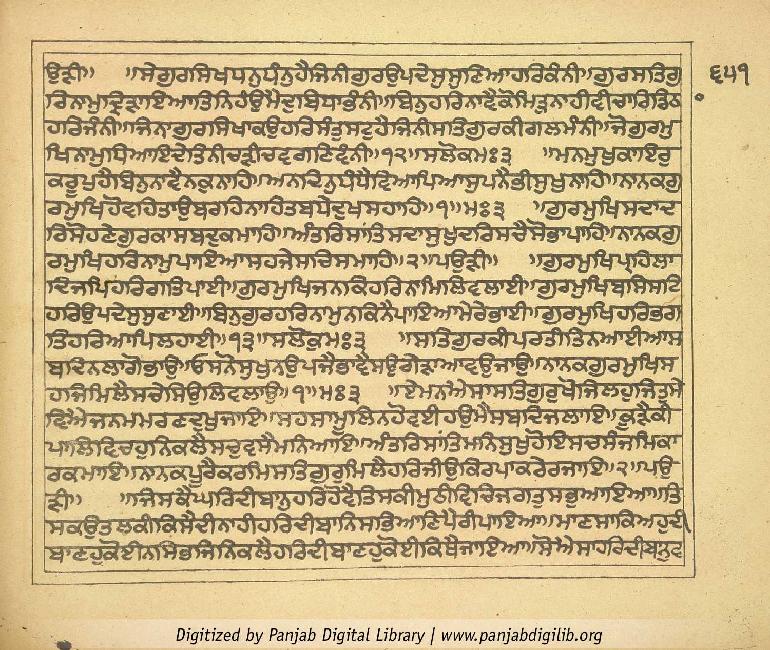 ਉੜੀ॥ ॥ਸੇਗੁਰਸਿਖਧਨੁਧੰਨੁਹੈਜਿਨੀਗੁਰਉਪਦੇਸੁਸੁਣਿਆਹਰਿਕੰਨੀ॥ਗੁਰਸਤਿਗੁ ੬੫੧
ਰਿਨਾਮੁਦ੍ਰਿੜਾਇਆਤਿਨਿਹੰਉਮੈਦੁਬਿਧਾਭੰਨੀ॥ਬਿਨੁਹਰਿਨਾਵੈਕੋਮਿਤ੍ਰੁਨਾਹੀਵੀਚਾਰਿਡਿਠ
ਹਰਿਜੰਨੀ॥ਜਿਨਾਗੁਰਸਿਖਾਕਉਹਰਿਸੰਤੁਸਟੁਹੈਜਿਨੀਸਤਿਗੁਰਕੀਗਲਮੰਨੀ॥ਜੋਗੁਰਮੁ
ਖਿਨਾਮੁਧਿਆਇਦੇਤਿਨੀਚੜੀਚਵਗਣਿਵੰਨੀ॥੧੨॥ਸਲੋਕਮਃ੩ ॥ਮਨਮੁਖੁਕਾਇਰੁ
ਕਰੂਪੁਹੈਬਿਨੁਨਾਵੈਨਕੁਨਾਹਿ॥ਅਨਦਿਨੁਧੰਧੈਵਿਆਪਿਆਸੁਪਨੈਭੀਸੁਖੁਨਾਹਿ॥ਨਾਨਕਗੁ
ਰਮੁਖਿਹੋਵਹਿਤਾਉਬਰਹਿਨਾਹਿਤਬਧੇਦੁਖਸਹਾਹਿ॥੧॥ਮਃ੩ ॥ਗੁਰਮੁਖਿਸਦਾਦ
ਰਿਸੋਹਣੇਗੁਰਕਾਸਬਦੁਕਮਾਹਿ॥ਅੰਤਰਿਸਾਂਤਿਸਦਾਸੁਖੁਦਰਿਸਚੈਸੋਭਾਪਾਹਿ॥ਨਾਨਕਗੁ
ਰਮੁਖਿਹਰਿਨਾਮੁਪਾਇਆਸਹਜੇਸਚਿਸਮਾਹਿ॥੨॥ਪਉੜੀ॥ ॥ਗੁਰਮੁਖਿਪ੍ਰਹਿਲਾ
ਦਿਜਪਿਹਰਿਗਤਿਪਾਈ॥ਗੁਰਮੁਖਿਜਨਕਿਹਰਿਨਾਮਿਲਿਵਲਾਈ॥ਗੁਰਮੁਖਿਬਸਿਸਟਿ
ਹਰਿਉਪਦੇਸੁਸੁਣਾਈ॥ਬਿਨੁਗੁਰਹਰਿਨਾਮੁਨਕਿਨੈਪਾਇਆਮੇਰੇਭਾਈ॥ਗੁਰਮੁਖਿਹਰਿਭਗ
ਤਿਹਰਿਆਪਿਲਹਾਈ॥੧੩॥ਸਲੋਕੁਮਃ੩ ॥ਸਤਿਗੁਰਕੀਪਰਤੀਤਿਨਆਈਆਸ
ਬਦਿਨਲਾਗੋਭਾਉ॥ਓਸਨੋਸੁਖੁਨਉਪਜੈਭਾਵੈਸਉਗੇੜਾਆਵਉਜਾਉ॥ਨਾਨਕਗੁਰਮੁਖਿਸ
ਹਜਿਮਿਲੈਸਚੇਸਿਉਲਿਵਲਾਉ॥੧॥ਮਃ੩ ॥ਏਮਨਐਸਾਸਤਿਗੁਰੁਖੋਜਿਲਹੁਜਿਤੁਸੇ
ਵਿਐਜਨਮਮਰਣਦੁਖੁਜਾਇ॥ਸਹਸਾਮੂਲਿਨਹੋਵਈਹਉਮੈਸਬਦਿਜਲਾਇ॥ਕੂੜੈਕੀ
ਪਾਲਿਵਿਚਹੁਨਿਕਲੈਸਚੁਵਸੈਮਨਿਆਇ॥ਅੰਤਰਿਸਾਂਤਿਮਨਿਸੁਖੁਹੋਇਸਚਸੰਜਮਿਕਾ
ਰਕਮਾਇ॥ਨਾਨਕਪੂਰੈਕਰਮਿਸਤਿਗੁਰੁਮਿਲੈਹਰਿਜੀਉਕਿਰਪਾਕਰੇਰਜਾਇ॥੨॥ਪਉ
ੜੀ॥ ॥ਜਿਸਕੈਘਰਿਦੀਬਾਨੁਹਰਿਹੋਵੈਤਿਸਕੀਮੁਠੀਵਿਚਿਜਗਤੁਸਭੁਆਇਆ॥ਤਿ
ਸਕਉਤਲਕੀਕਿਸੈਦੀਨਾਹੀਹਰਿਦੀਬਾਨਿਸਭਿਆਣਿਪੈਰੀਪਾਇਆ॥ਮਾਣਸਾਕਿਅਹੁਦੀ
ਬਾਣਹੁਕੋਈਨਸਿਭਜਿਨਿਕਲੈਹਰਿਦੀਬਾਣਹੁਕੋਈਕਿਥੈਜਾਇਆ॥ਸੋਐਸਾਹਰਿਦੀਬਾਨੁਵ
Digitized by Panjab Digital Library | www.panjabdigilib.org